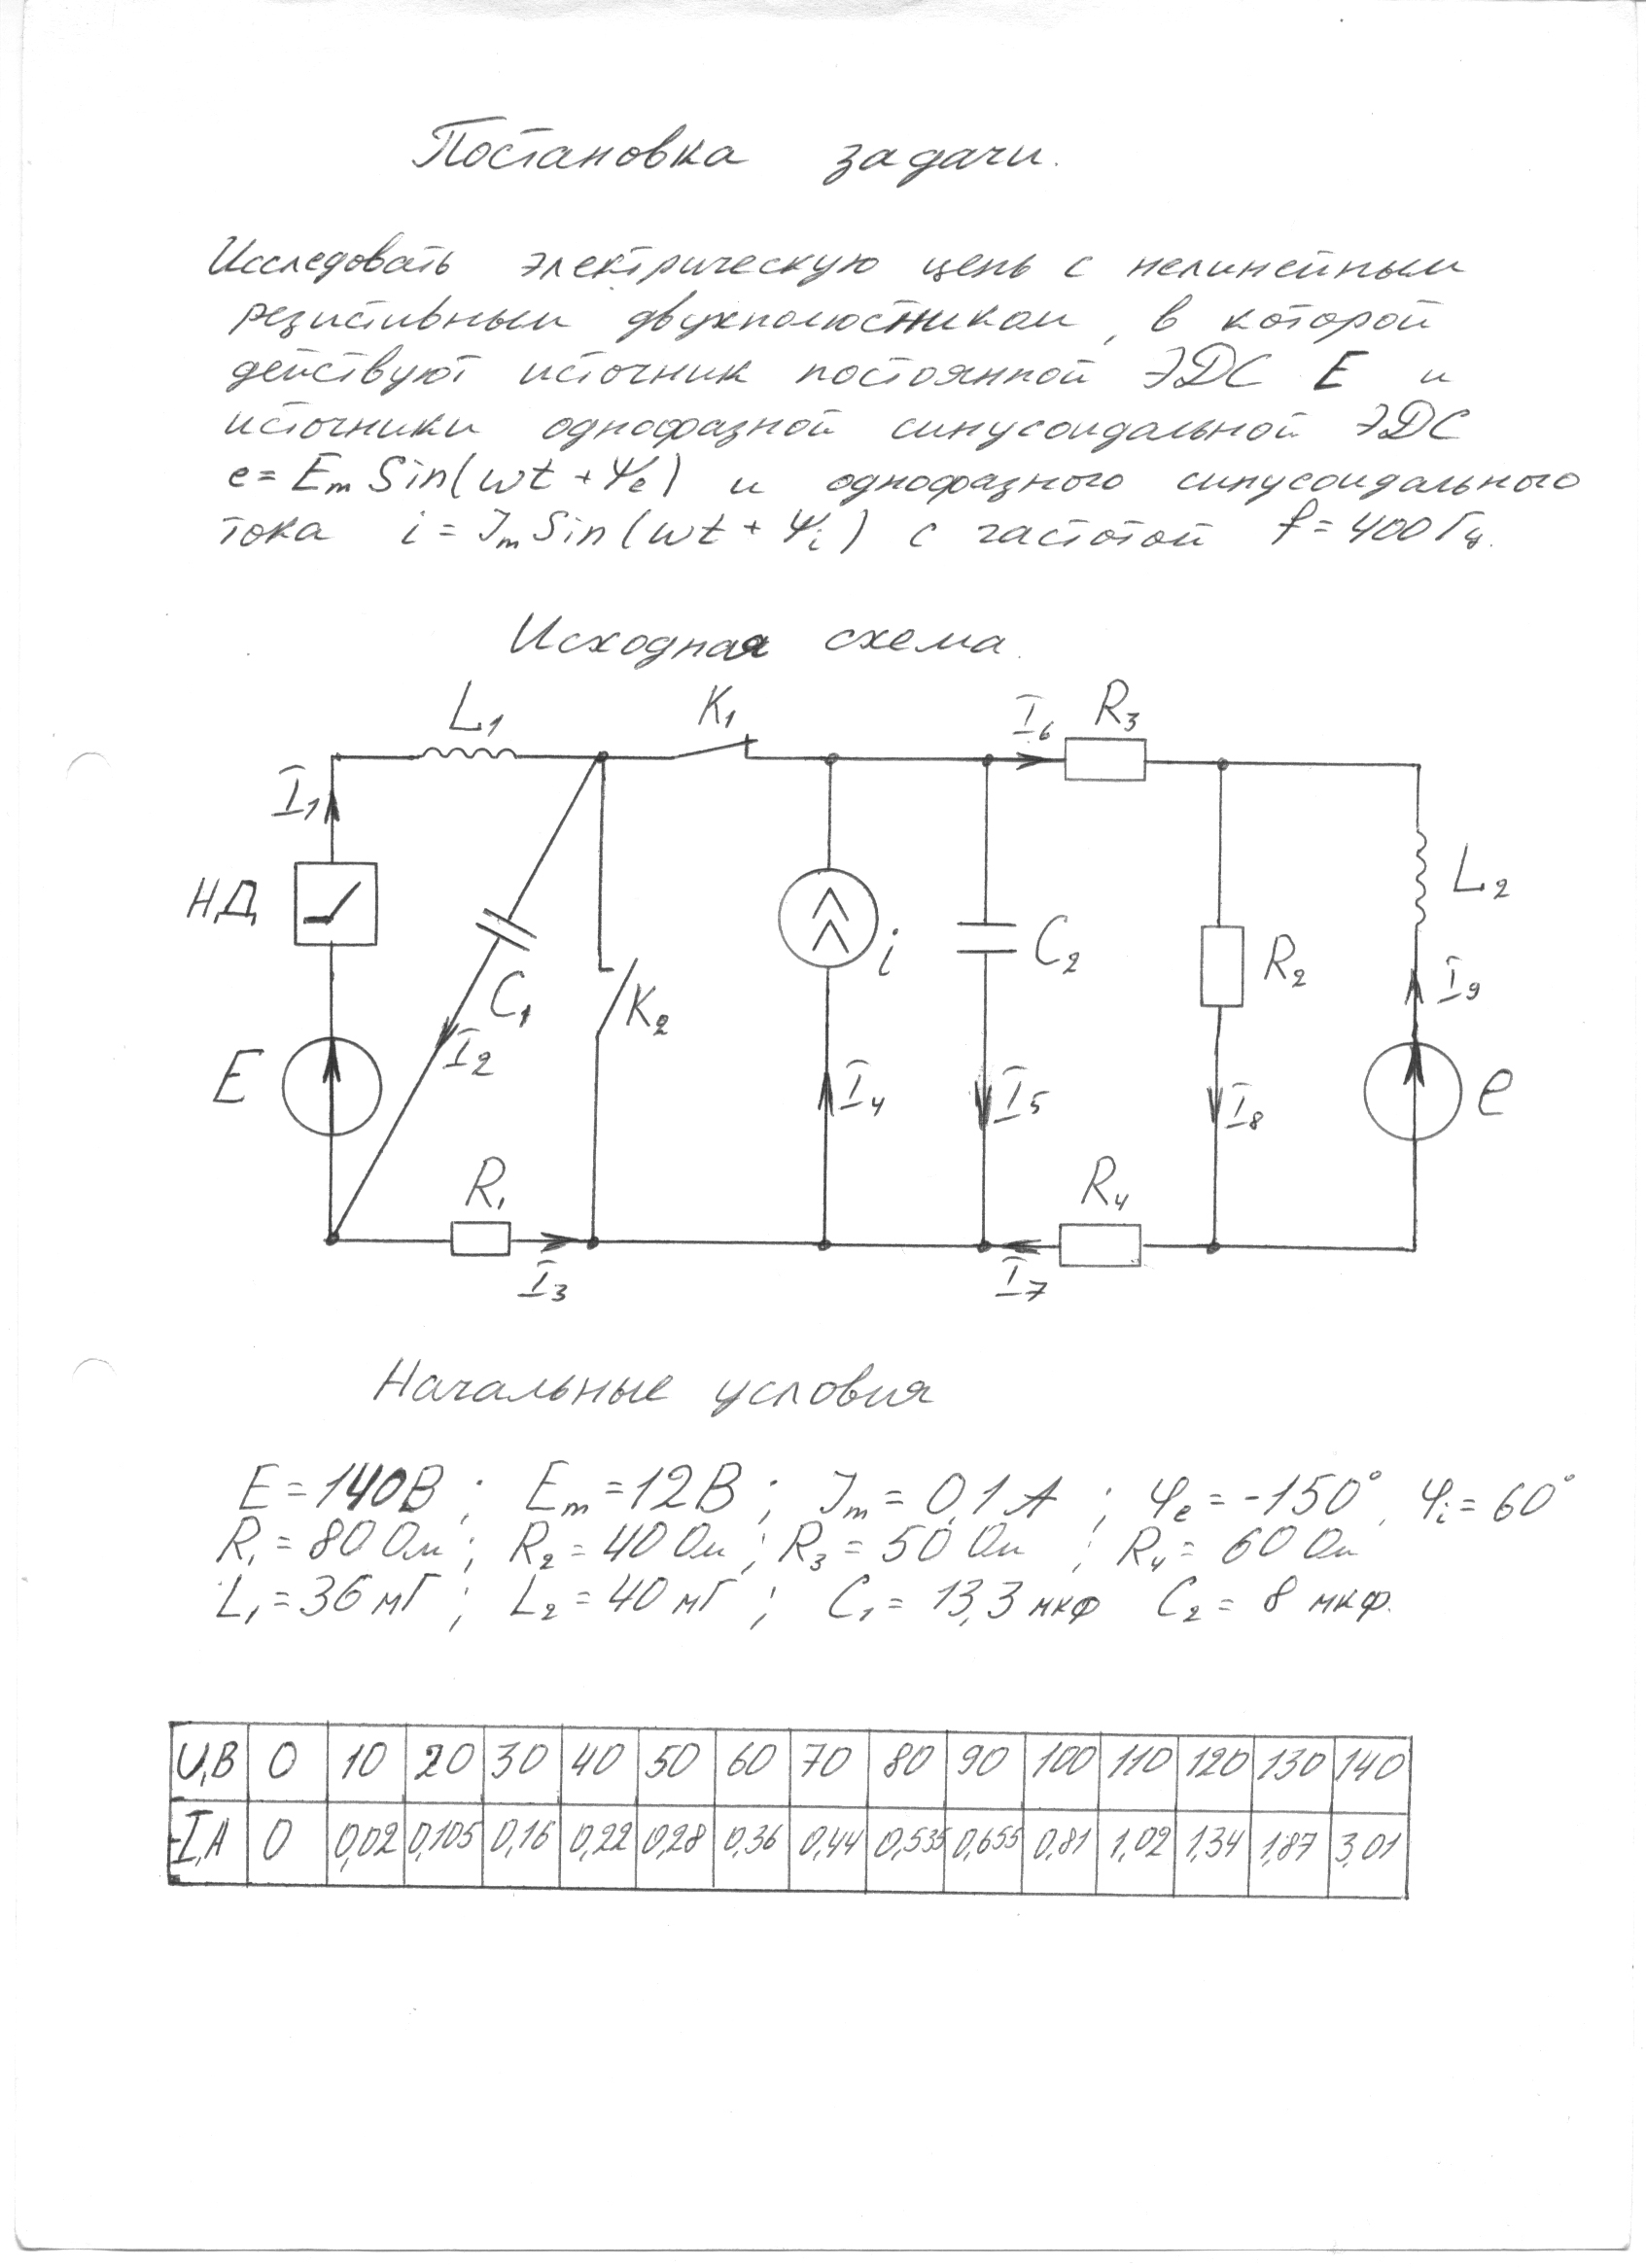 Постановка задачи.
Исследовать электрическую цепь с нелинейным
резистивным двухполюстником, в которой
действуют источник постоянной ЭДС E и
источники однофазной синусоидальной ЭДС
e = Em Sin(ωt + Ψe) и однофазного синусоидального
тока i = Jm Sin(ωt + Ψi) с частотой f = 400 Гц.
Исходная схема.
L1 K1 I6 R3
I1
НД C1 K2 i C2 R2 L2
I9
E I2 I4 I5 I8 e
R1 R4
I3 I7
Начальные условия
E = 140 В ; Em = 12 В ; Jm = 0,1 А ; Ψe = -150°, Ψi = 60°
R1 = 80 Ом ; R2 = 40 Ом ; R3 = 50 Ом ; R4 = 60 Ом
L1 = 36 мГ ; L2 = 40 мГ ; C1 = 13,3 мкФ C2 = 8 мкФ.
U,В 0 10 20 30 40 50 60 70 80 90 100 110 120 130 140
I,А 0 0,02 0,105 0,16 0,22 0,28 0,36 0,44 0,535 0,655 0,81 1,02 1,34 1,87 3,01